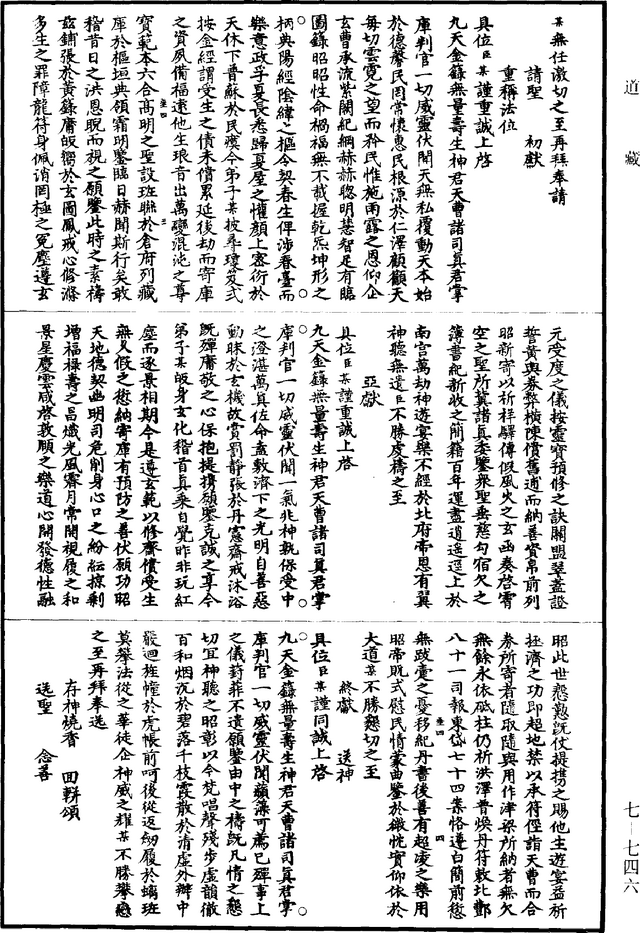 道藏
某無任激切之至再拜奉請
請聖　初獻
重稱法位
具位臣某謹重誠上啓
九天金籙無量壽生神君天曹諸司真君掌
庫判官一切威靈伏聞天無私覆動天本始
於德馨民罔常懷惠民根源於仁澤顧顧天
每切雲霓之望而矜民惟施雨露之恩仰企
玄曹承流紫闕紀綱赫赫聰明基智足有臨
圖錄昭昭性命禍福無不載握乾炁坤形之
柄典陽經陰緯之樞今契春生俾涉春臺而
樂意政孚夏長悉歸夏屋之懽顏上宻衍於
天休下普蘇於民瘼今弟子某披尋瓊笈式
按金經謂受生之債未償累延後劫而寄庫
之資夙備福遶他生琅音出萬變混沌之尊
寶範本六合高明之聖設班聯於倉府列藏
庫於樞垣典領霜明鑒臨日赫聞斯行矣敢
稽昔日之洪恩脫而視之願鑒此時之素禱
茲鋪張於黃籙庸皈嚮於玄圖鳳戒心修滌
多生之罪障龍符身佩消罔極之冤塵遵玄
元受度之儀按靈寶預修之訣關盟翠蓋證
誓黃輿券弊橫陳償舊逋而納善寳帛前列
昭新寄以祈祥驛傳假風火之玄函奏啓霄
空之聖所冀諸真委鑒眾聖垂慈勾宿欠之
簿書紀新收之簡籍百年運盡逍遥逕上於
南宮萬劫神遊宴樂不經於北府帝恩有翼
神聽無遺臣不勝虔禱之至
亞獻
具位臣某謹重誠上啓
九天金籙無量壽生神君天曹諸司真君掌
庫判官一切威靈伏聞一氣兆神執保受中
之澄湛萬真佐命盍敷濟下之光明自善惡
動昧於玄機故賞罰靜張於丹憲齋戒沐浴
旣殫庸敬之心保抱提携願鑒克誠之享今
弟子某皈身玄化稽首真乘自覺昨非玩紅
塵而逐景相期今是遵玄範以修齋償受生
無乂假之愆納寄庫有預防之善伏願功昭
天地德契幽明司危削身心口之紛紜掠剩
增福祿壽之昌熾光風霽月常開視履之和
景星慶雲咸啓敉頤之樂道心開發德性融
昭此世怨懃旣仗提携之賜他生遊宴益祈
拯濟之功即超地禁以承符俓詣天曹而合
券所寄者隨取隨與用作津梁所納者無欠
無餘永依砥柱仍祈洪澤普煥丹符敕北酆
八十一司報東岱七十四案恪遵白簡前愆
無政虁之憂移紀丹書後善有超凌之樂用
昭帝旣式慰民情蒙曲鑒於微忱實仰依於
大道某不勝懇切之至
終獻　送神
具位臣某謹同誠上啓
九天金籙無量壽生神君天曹諸司真君掌
庫判官一切威靈伏聞蘋藻可薦已殫事上
之儀葑菲不遺願鑒由中之禱旣凡情之懇
切宜神聽之昭彰以今梵唱聲殘步虛韻徹
百和烟沉於碧落千枝霞散於清虛外辯中
嚴迴旌幢於虎帳前呵後從返劒履於螭班
莫攀法從之華徒企神威之耀某不勝攀戀
之至再拜奉送
存神燒香　回軿頌
送聖　念善
七－七四六